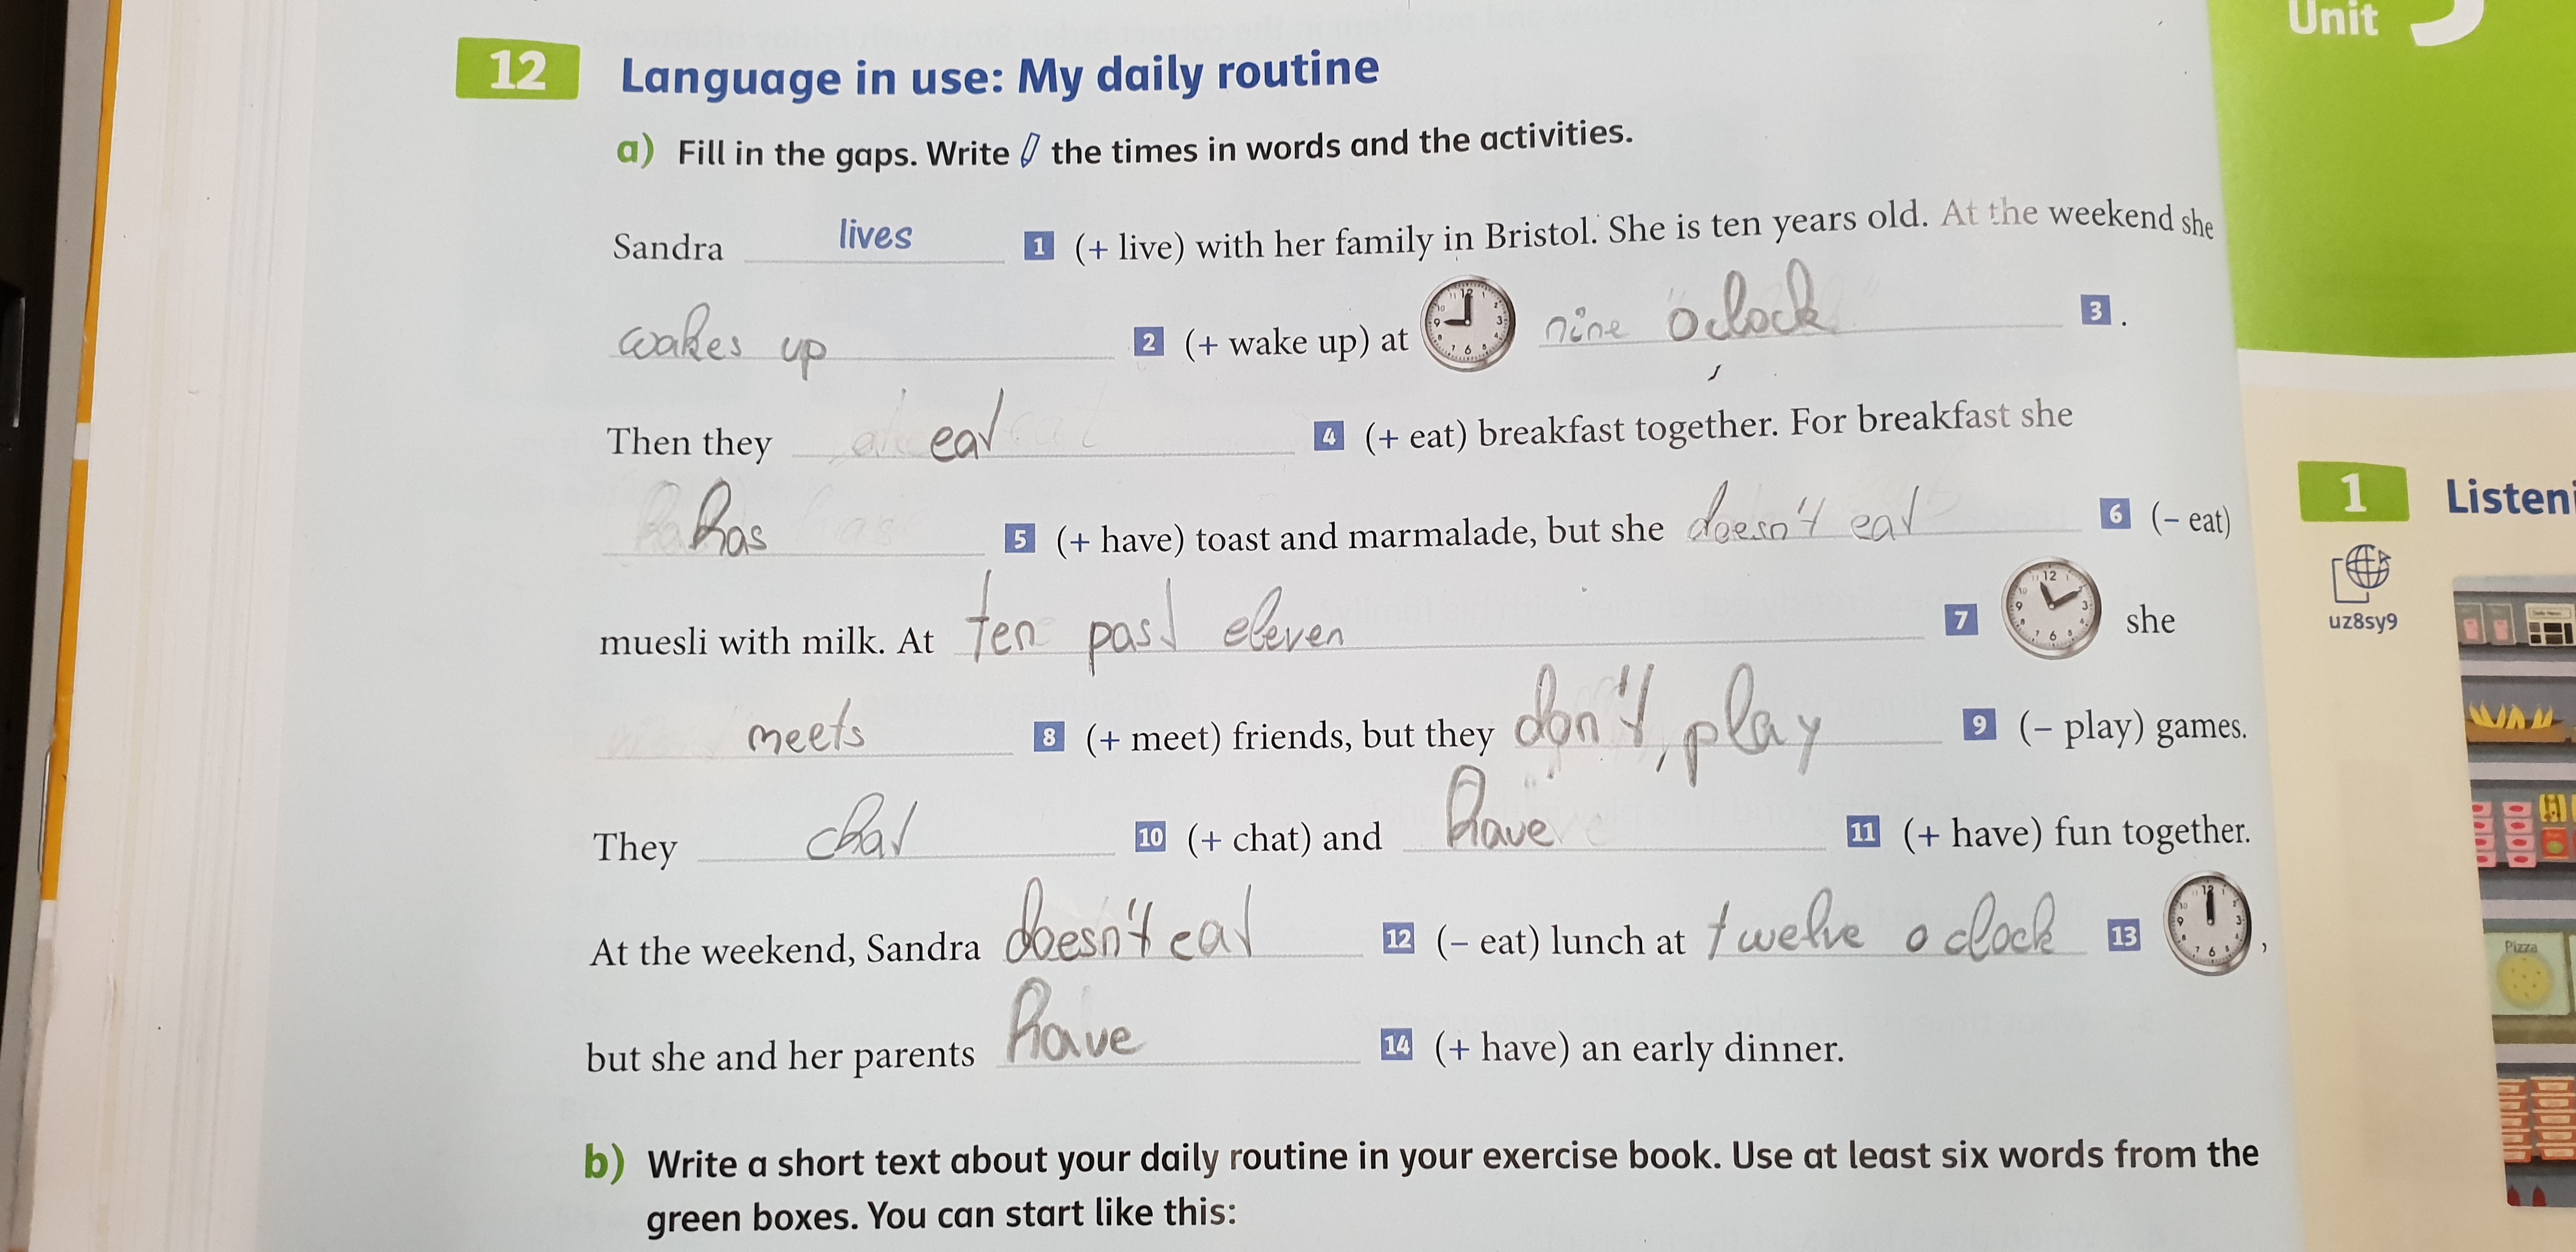 Unit
12 Language in use: My daily routine
a) Fill in the gaps. Write the times in words and the activities.
Sandra lives 1 (+ live) with her family in Bristol. She is ten years old. At the weekend she
wakes up 2 (+ wake up) at nine o'clock 3.
Then they eat 4 (+ eat) breakfast together. For breakfast she
has 5 (+ have) toast and marmalade, but she doesn't eat 6 (– eat)
muesli with milk. At ten past eleven 7 she
meets 8 (+ meet) friends, but they don't play 9 (– play) games.
They chat 10 (+ chat) and have 11 (+ have) fun together.
At the weekend, Sandra doesn't eat 12 (– eat) lunch at twelve o clock 13,
but she and her parents have 14 (+ have) an early dinner.
b) Write a short text about your daily routine in your exercise book. Use at least six words from the
green boxes. You can start like this:
1 Listeni
uz8sy9
Pizza